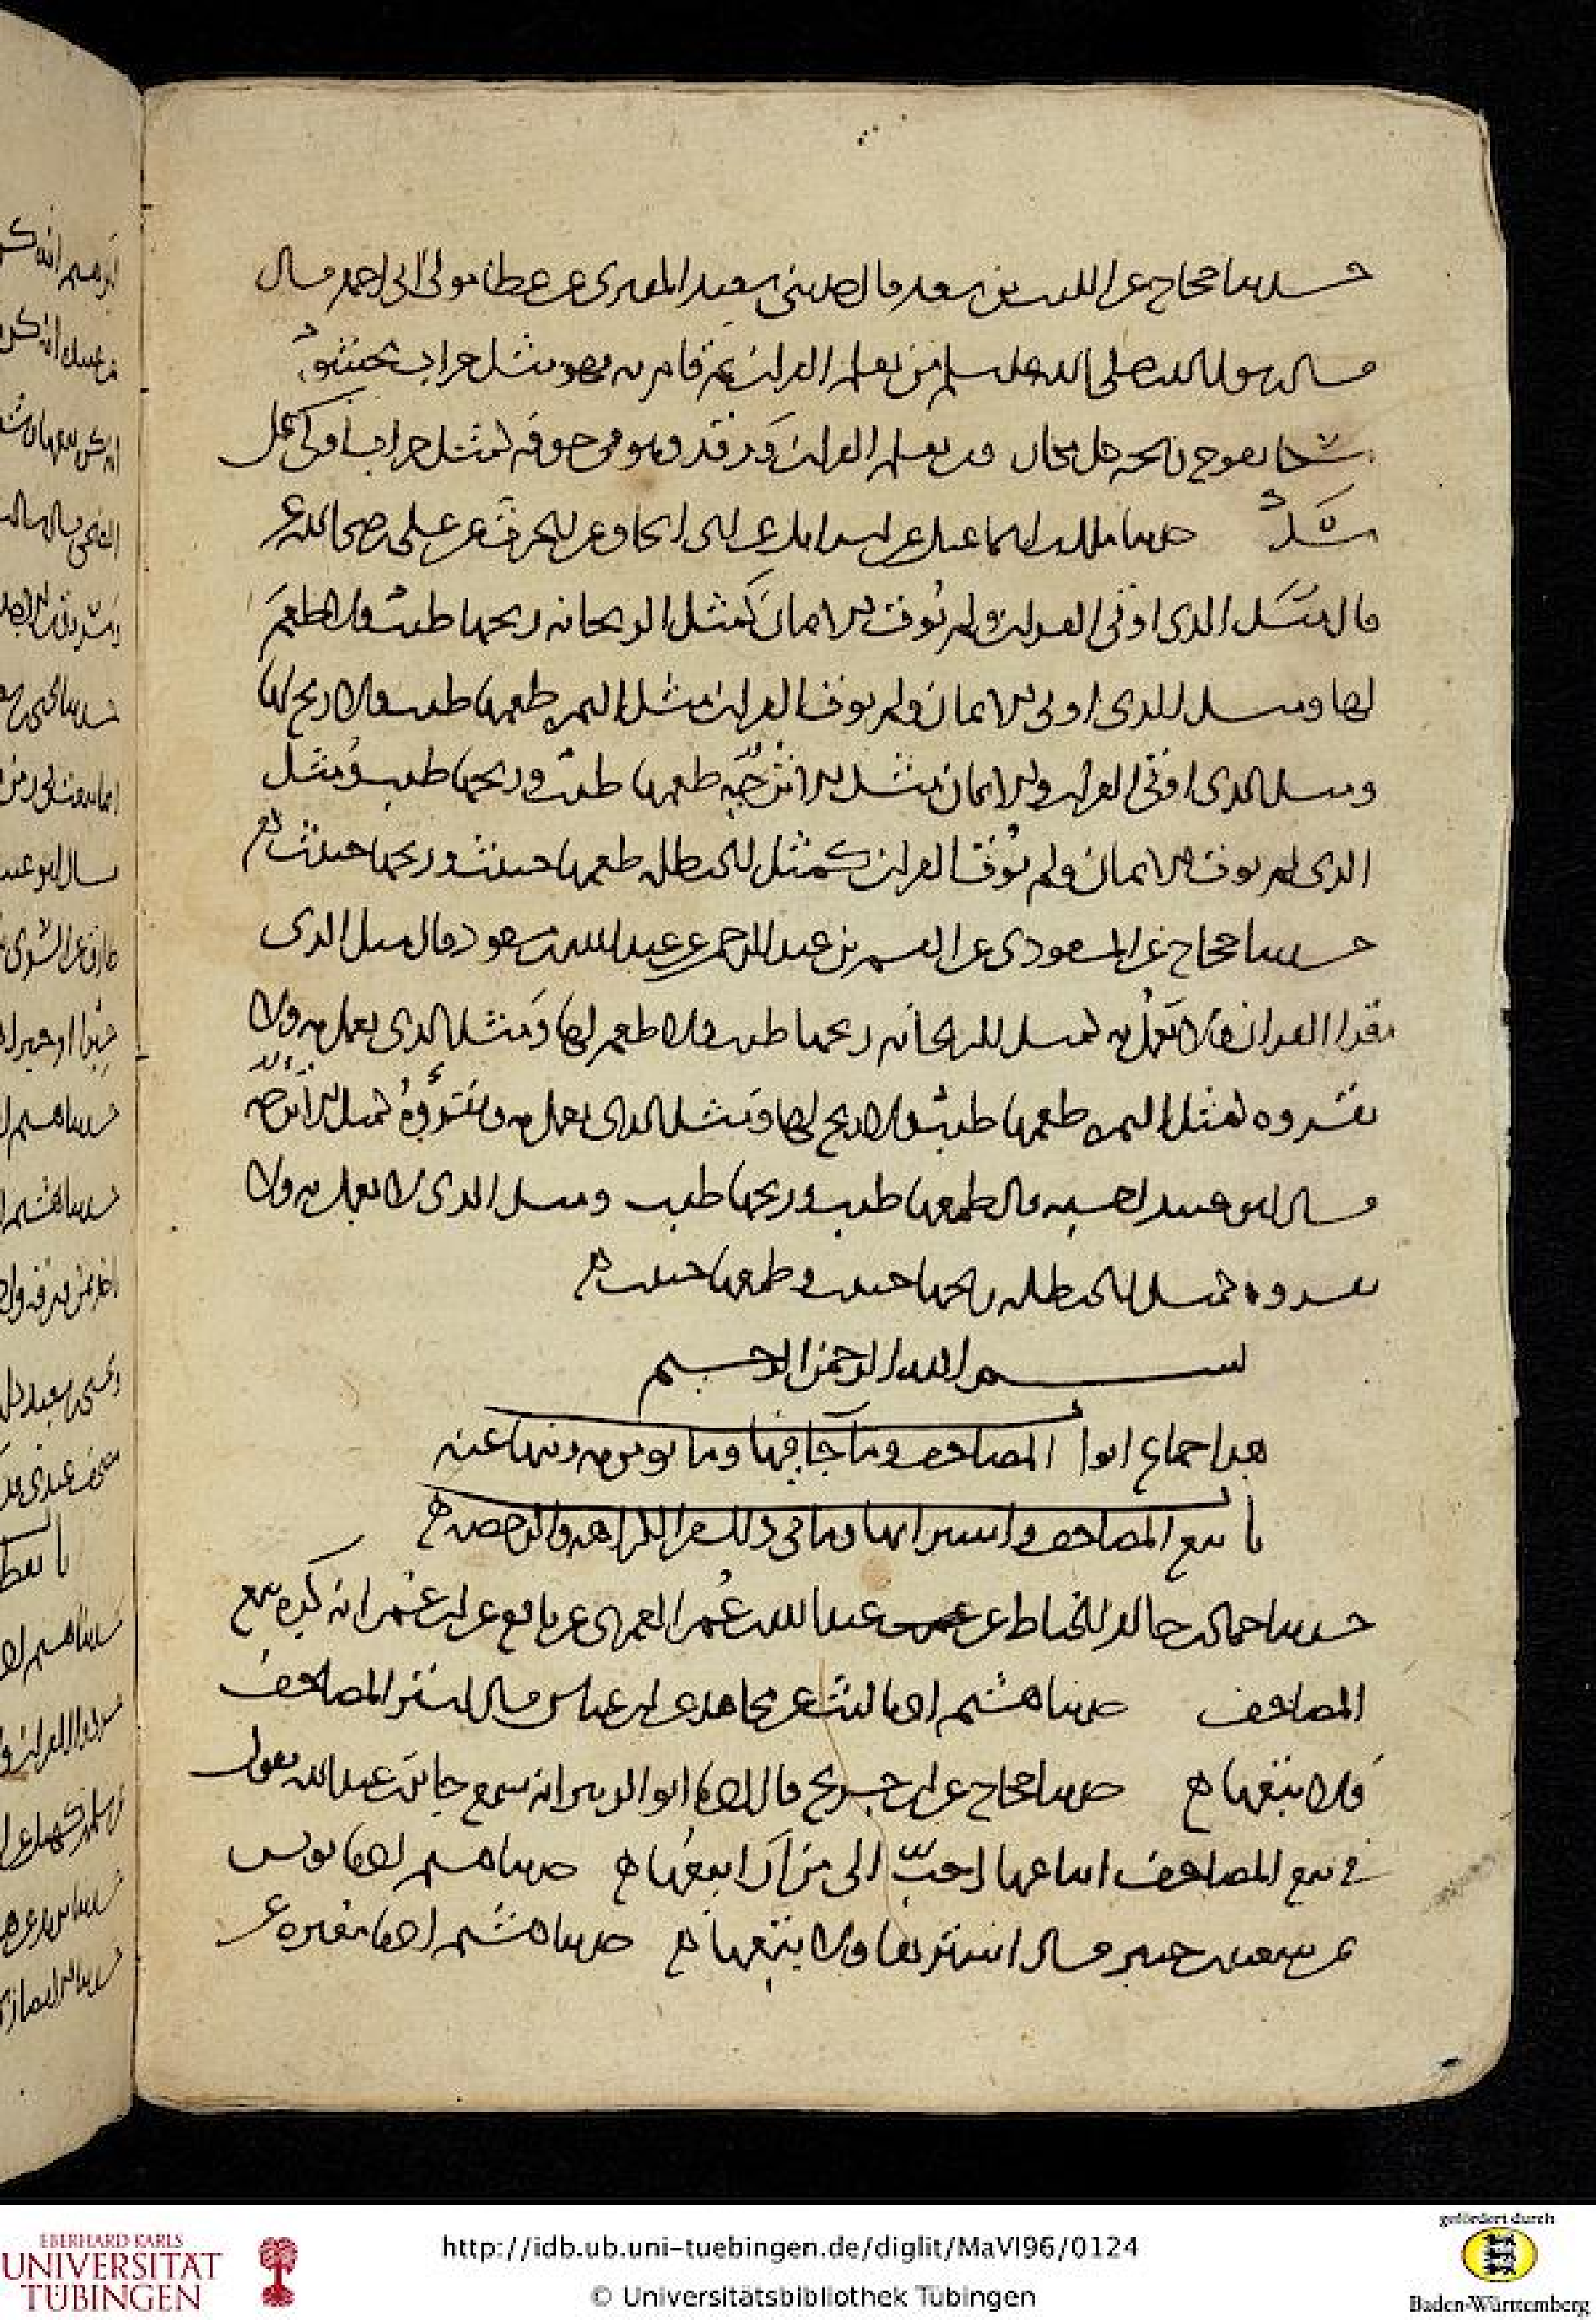 حدثنا حجاج عن الليث بن سعد قال حدثني سعيد المقبري عن عطا مولى ابي احمد قال
قال رسول الله صلى الله عليه وسلم من تعلم القران ثم قام به فهو مثل جراب محشو
مسكا يفوح ريحه كل مكان ومن تعلم القران ورقد وهو في جوفه كمثل جراب اوكى على
مسك حدثنا اسماعيل عن اسرائيل عن ابي اسحاق عن الحرث عن علي رضي الله عنه
قال مثل الذي اوتي القران ولم يوت الايمان كمثل الريحانه ريحها طيب ولا طعم
لها ومثل الذي اوتي الايمان ولم يوت القران مثل التمره طعمها طيب ولا ريح لها
ومثل الذي اوتي القران والايمان مثل الاترجه طعمها طيب وريحها طيب ومثل
الذي لم يوت الايمان ولم يوت القران كمثل الحنظله طعمها خبيث وريحها خبيث
حدثنا حجاج عن المسعودي عن القسم بن عبد الرحمن عن عبد الله بن مسعود قال مثل الذي
يقرا القران ولا يعمل به كمثل الريحانه ريحها طيب ولا طعم لها ومثل الذي يعمل به ولا
يقروه كمثل التمره طعمها طيب ولا ريح لها ومثل الذي يعمل به ويقروه كمثل الاترجه
قال ابو عبيد احسبه قال طعمها طيب وريحها طيب ومثل الذي لا يعمل به ولا
يقروه كمثل الحنظله ريحها خبيث وطعمها خبيث ه
بسم الله الرحمن الرحيم
هذا جماع ابواب المصاحف وما جا فيها وما يومر به وينهى عنه
باب بيع المصاحف واشترائها وما في ذلك من الكراهه والرخصه ه
حدثنا حماد بن خالد الخياط عن عبد الله بن عمر العمري عن نافع عن ابن عمر انه كره بيع
المصاحف حدثنا هشيم اخبرنا ليث عن مجاهد عن ابن عباس قال اشتر المصاحف
ولا تبعها ه حدثنا حجاج عن ابن جريج قال اخبرنا ابو الزبير انه سمع جابر بن عبد الله يقول
في بيع المصاحف ابتاعها احب الي من ان ابيعها ه حدثنا هشيم اخبرنا يونس
عن سعيد بن جبير قال اشترها ولا تبعها ه حدثنا هشيم اخبرنا مغيره عن
EBERHARD KARLS
UNIVERSITÄT
TÜBINGEN
http://idb.ub.uni-tuebingen.de/diglit/MaVI96/0124
© Universitätsbibliothek Tübingen
gefördert durch
Baden-Württemberg